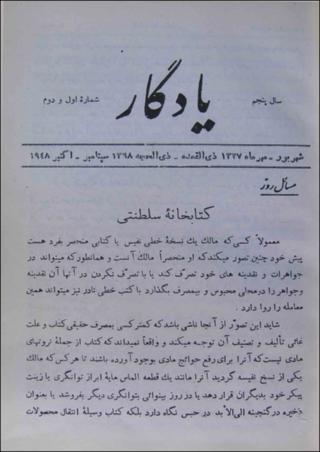 سال پنجم
شمارهٔ اول و دوم
یادگار
شهریور - مهرماه ۱۳۲۷ ذی‌القعده - ذی‌الحجه ۱۳۶۸ سپتامبر - اکتبر ۱۹۴۸
مسائل روز
کتابخانهٔ سلطنتی
معمولاً کسی که مالك یك نسخهٔ خطی نفیس یا کتابی منحصر بفرد هست
پیش خود چنین تصور میکند که او منحصراً مالك آنست و همانطور که میتواند در
جواهرات و نقدینه های خود تصرف کند یا با تصرف نکردن در آنها آن نقدینه
و جواهر را در محلی محبوس و بیمصرف بگذارد با کتب خطی نادر نیز میتواند همین
معامله را روا دارد .
شاید این تصور از آنجا ناشی باشد که کمتر کسی بمصرف حقیقی کتاب و علت
غائی تألیف و تصنیف آن توجه میکند و واقعاً نمیداند که کتاب از جملهٔ ثروتهای
مادی نیست که آنرا برای رفع حوائج مادی بوجود آورده باشند تا هر کس که مالك
یکی از نسخ نفیسه گردید آنرا مانند یك قطعه الماس مایهٔ ابراز توانگری یا زینت
پیکر خود بدیگران قرار دهد یا در روز بینوائی بتوانگری دیگر بفروشد یا بعنوان
ذخیره در گنجینه الی‌الابد در حبس نگاه دارد بلکه کتاب وسیلهٔ انتقال محصولات